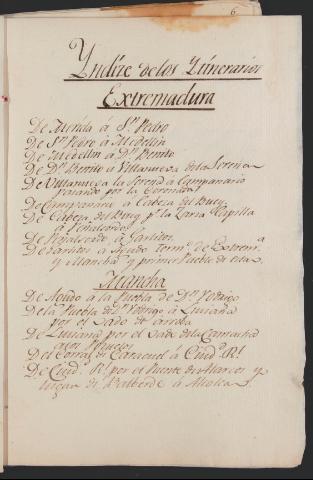 6
Yndize de los Ytinerarios
Extremadura
De Merida à Sn. Pedro
De Sn. Pedro à Medellin
De Medellin à Dn. Benito
De Dn. Benito à Villanueva de la Serena
De Villanueva la Serena à Campanario
pasando por la Coronada
De Campanario à Cabeza del Buey
De Cabeza del Buey pr. la Zarza Capilla
à Peñalsordo
De Peñalsordo à Garlitos
De Garlitos à Agudo Termo. de Extrema.
y Mancha y primer Pueblo de esta
Mancha
De Agudo a la Puebla de Dn. Rodrigo
De la Puebla de Dn. Rodrigo à Luciana
por el Vado de Arroba
De Luciana por el Vado de la
a los Pozuelos
Del Corral de Caracuel à Ciudd. Rl.
De Ciudd. Rl. por el Puente de Alarcos y
lugar de Balberde à